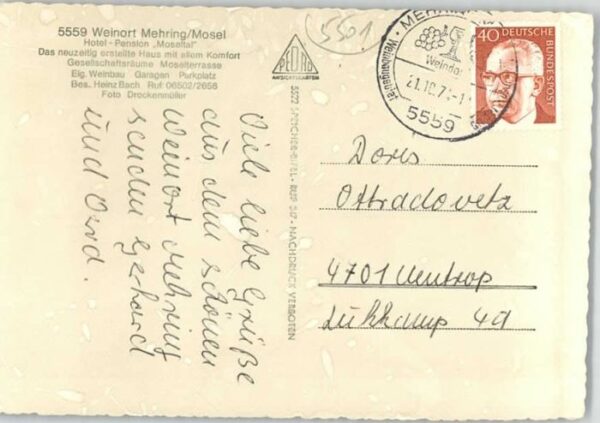 5559 Weinort Mehring/Mosel
Hotel - Pension „Moseltal"
Das neuzeitig erstellte Haus mit allem Komfort
Gesellschaftsräume Moselterrasse
Eig. Weinbau Garagen Parkplatz
Bes. Heinz Bach Ruf: 06502/2658
Foto Drockenmüller
Viele liebe Grüße
aus dem schönen
Weinort Mehring
senden Gerhard
und
PEDRO
ANSICHTSKARTEN
5522 SPEICHER-EIFEL - RUF
NACHDRUCK VERBOTEN
5501
MEHRING
Weindorf
21.10.7
5559
40 DEUTSCHE
BUNDESPOST
Doris
Ottradovetz
4701 Uentrop
4a